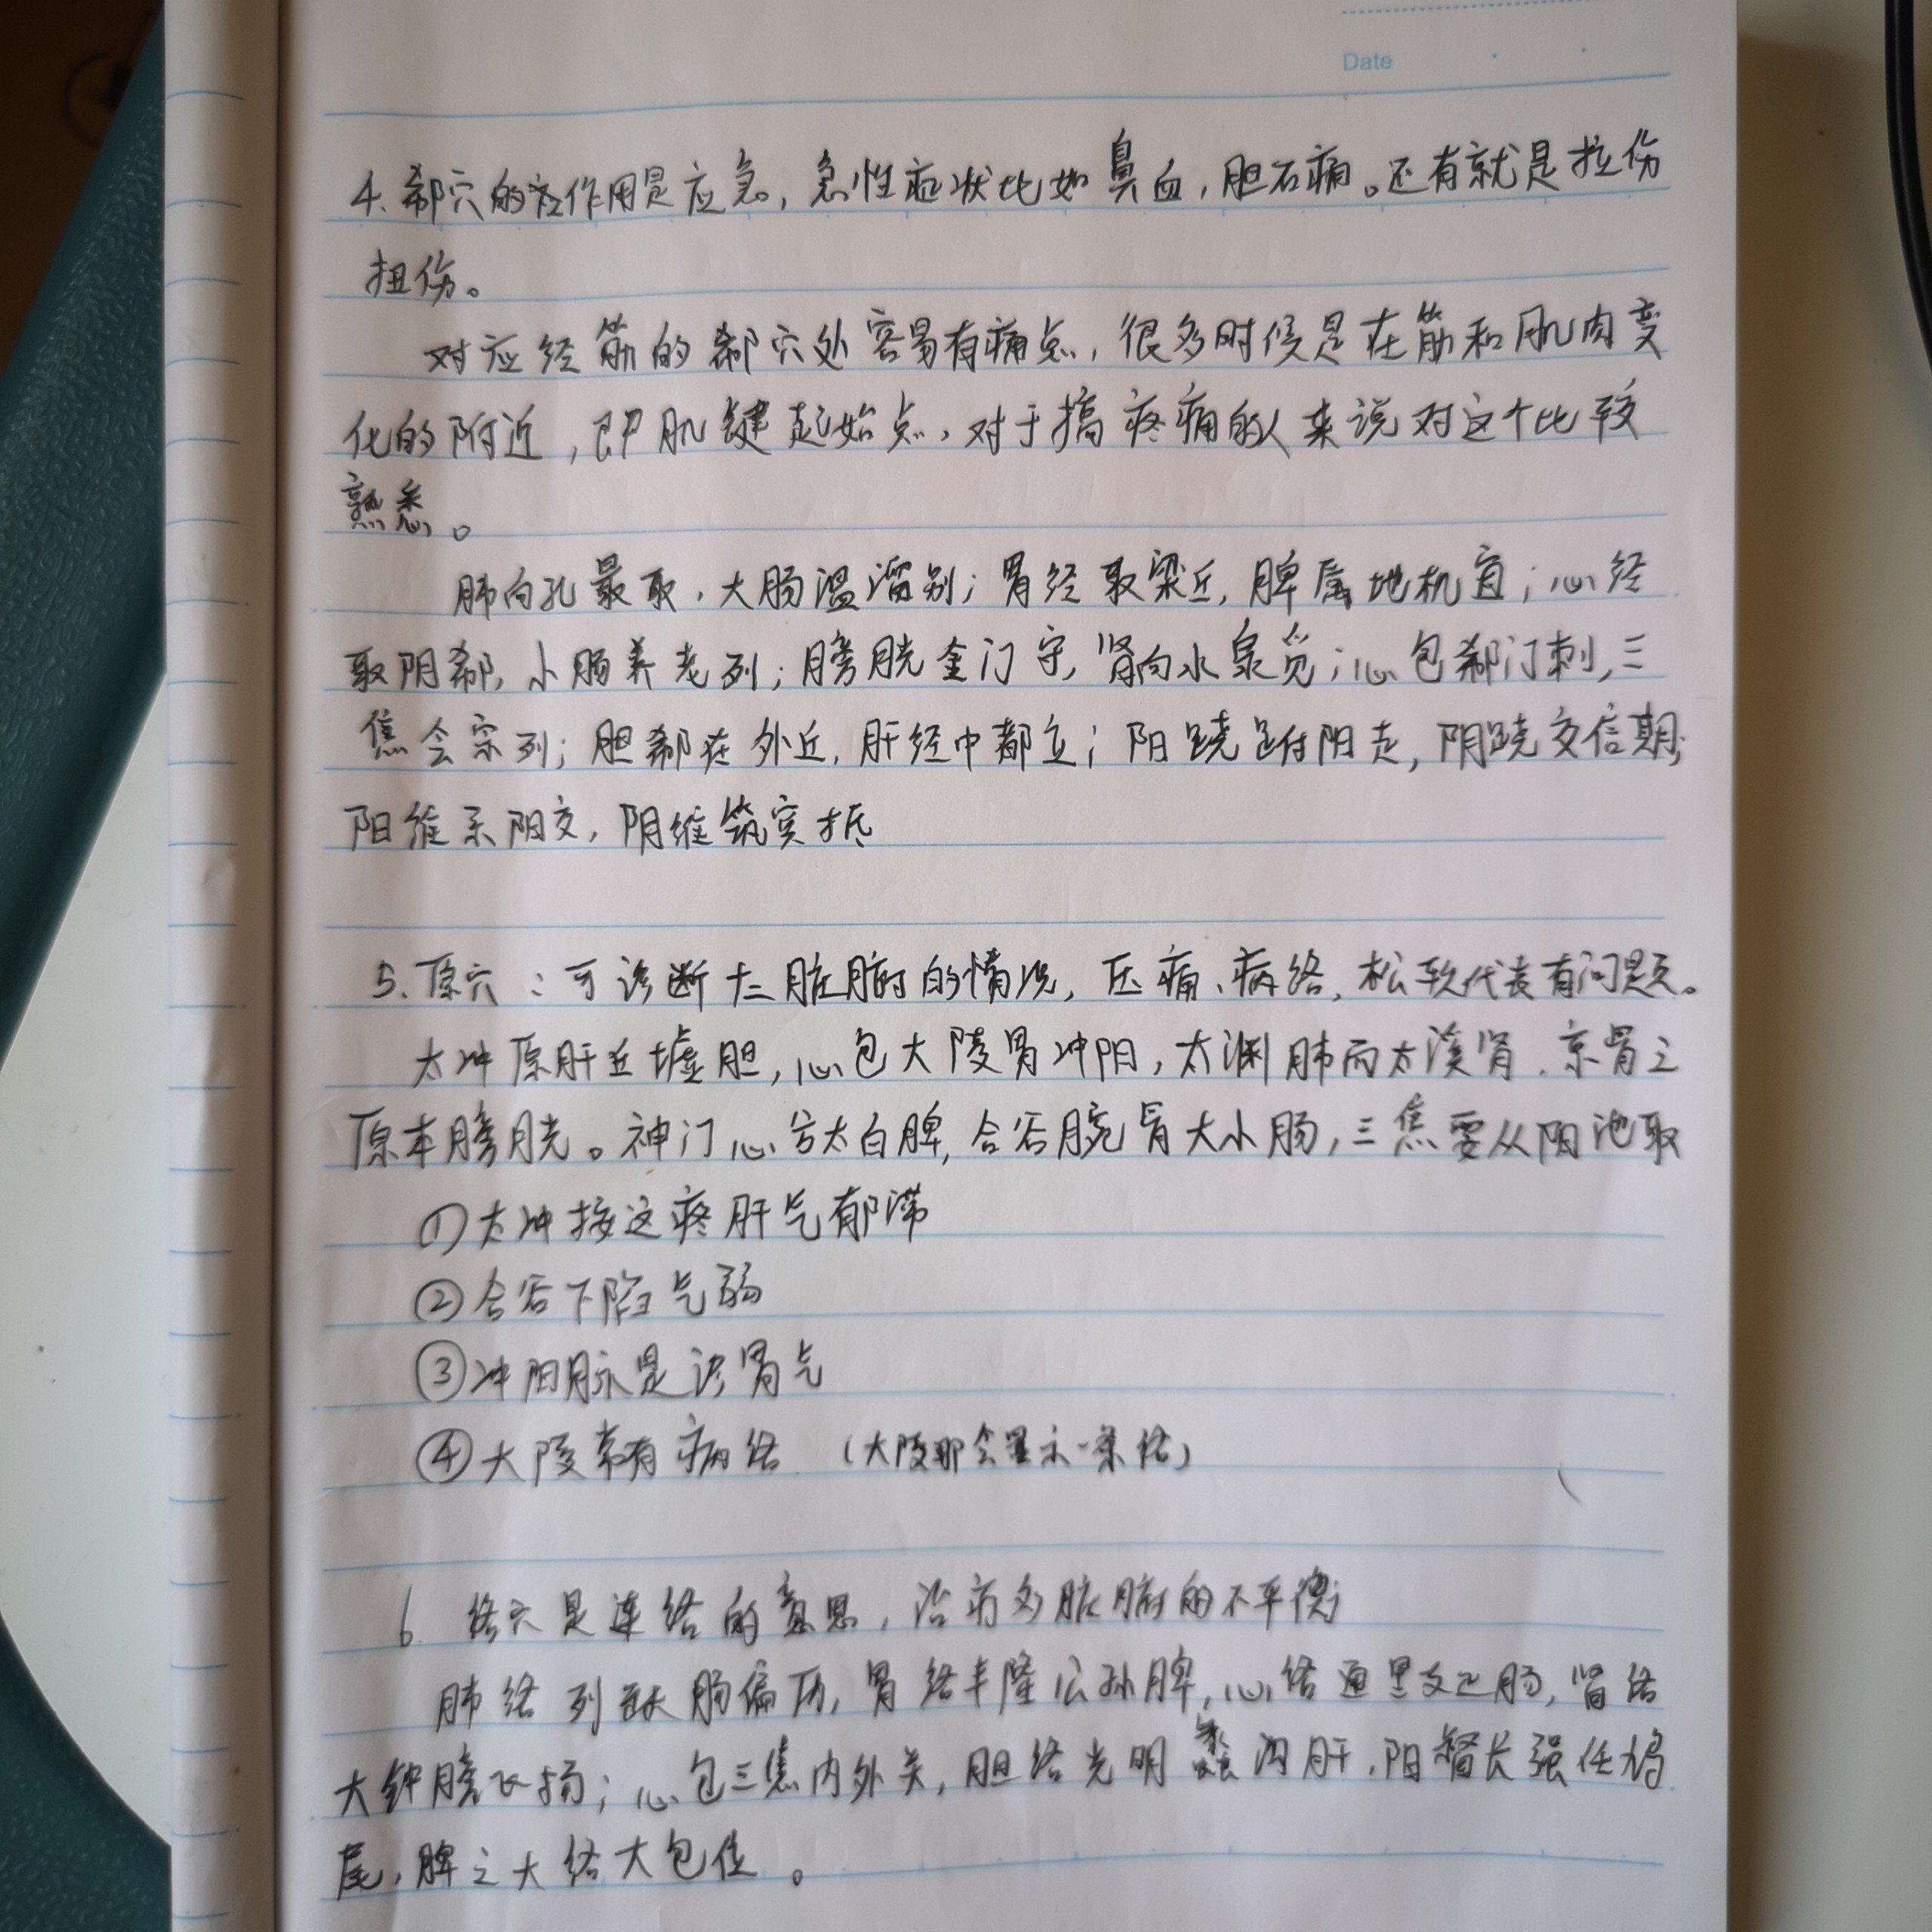 Date
4. 郄穴的作用是应急,急性症状比如鼻血,胆石痛。还有就是拉伤
扭伤。
对应经筋的郄穴处容易有痛点,很多时候是在筋和肌肉变
化的附近,即肌键起始点,对于搞疼痛的人来说对这个比较
熟悉。
肺向孔最取,大肠温溜别;胃经取梁丘,脾属地机宜;心经
取阴郄,小肠养老列;膀胱金门守,肾向水泉觅;心包郄门刺,三
焦会宗列;胆郄在外丘,肝经中都立;阳跷跗阳走,阴跷交信期;
阳维系阳交,阴维筑宾抵
5. 原穴:可诊断十二脏腑的情况,压痛、病络,松软代表有问题。
太冲原肝丘墟胆,心包大陵胃冲阳,太渊肺而太溪肾,京骨之
原本膀胱。神门心兮太白脾,合谷腕骨大小肠,三焦要从阳池取
①太冲按这疼肝气郁滞
②合谷下陷气弱
③冲阳脉是诊胃气
④大陵常有病络 (大陵那会显示一条络)
6. 络穴是连络的意思,治疗多脏腑的不平衡
肺络列缺大肠偏历,胃络丰隆公孙脾,心络通里支正肠,肾络
大钟膀飞扬;心包三焦内外关,胆络光明蠡沟肝,阳督长强任鸠
尾,脾之大络大包位。